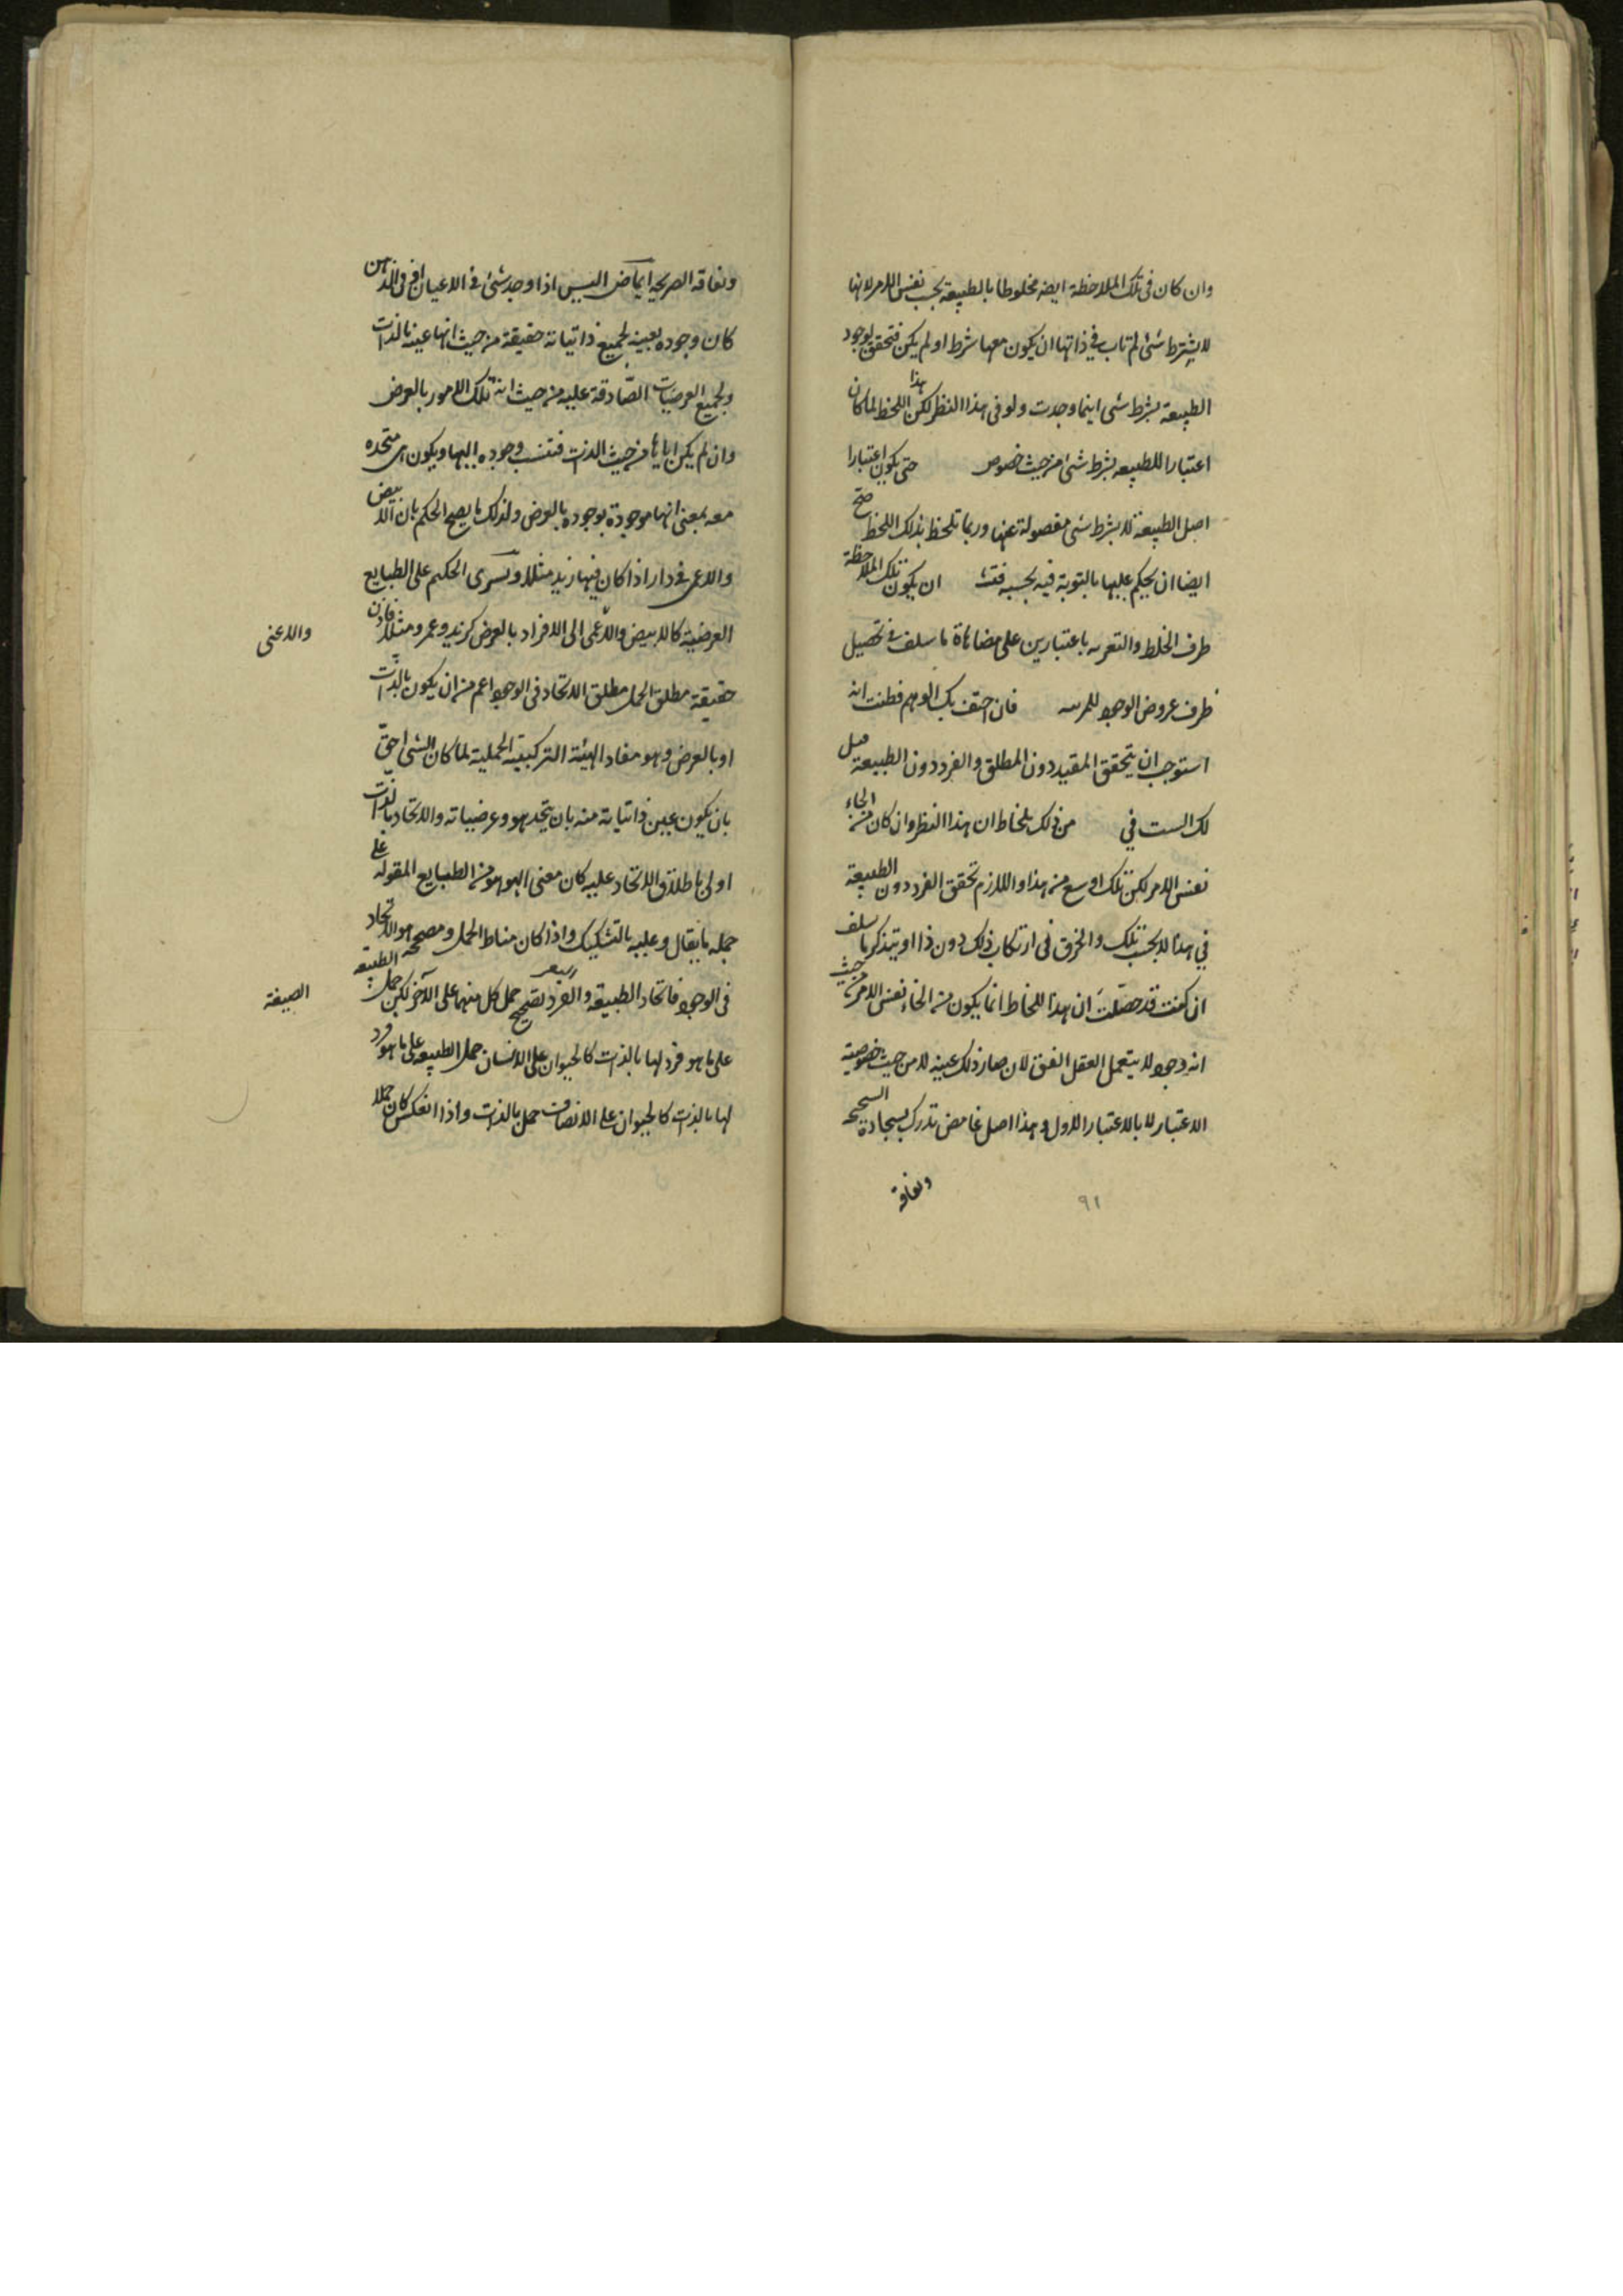 وان كان فى تلك الملاحظة ايضه مخلوطا بالطبيعة بحسب نفس الامر لانها
لا يشترط شئ لم تاب فى ذاتها ان يكون معها شرط او لم يكن فتحقق لوجود
الطبيعة بشرط شى اينما وجدت ولو فى هذا النظر لكن هذا اللحظ لما كان
اعتبارا للطبيعه بشرط شئ من حيث خصوص حتى يكون اعتبارا
اصل الطبيعة لا بشرط شى مفصولة عنها وربما تلحظ بذلك اللحظ صح
ايضا ان يحكم عليها بالتوبة فيه بحسبه فتث ان يكون تلك الملاحظة
ظرف الخلط والتعريه باعتبارين على مضاهاة ما سلف فى تحصيل
ظرف عروض الوجود للمهيه فان احتف بك الوهم فظنت انه
استوجب ان يتحقق المقيد دون المطلق والفرد دون الطبيعة قيل
لك الست فى من ذلك بلحاظ ان هذا النظر وان كان من انحاء
نفس الامر لكن تلك اوسع من هذا واللازم تحقق الفرد دون الطبيعة
فى هذا لا بحسب تلك والخرق فى ارتكاب ذلك دون ذا او تتذكر ما سلف
ان كنت قد حصّلت ان هذا اللحاظ انما يكون من انحاء نفس الامر من حيث
انه وجود لا يتعمل العقل الفتق لان صار ذلك عينه لا من حيث خصوصية
الاعتبار لا بالاعتبار الاول وهذا اصل غامض تدرك بسجادة السجيحه
ولعاقه
٩١
ولعاقه الصريحه ايماض اليس اذا وجد شئ فى الاعيان او فى الذهن
كان وجوده بعينه لجميع ذاتياته حقيقة من حيث انها عينه بالذات
ولجميع العرضيات الصّادقة عليه من حيث انه تلك الامور بالعرض
وان لم يكن اياها من حيث الذات فتنسب وجوده اليها ويكون هى متحده
معه بمعنى انها موجودة بوجوده بالعرض ولذلك ما يصح الحكم بان الابيض
والاعمى فى دار اذا كان فيها زيد مثلا ويسرى الحكم على الطبايع
العرضية كالابيض والاعمى الى الافراد بالعرض كزيد وعمرو مثلا فاذن
والاعمى
حقيقة مطلق الحمل مطلق الاتحاد فى الوجود اعم من ان يكون بالذات
او بالعرض وهو مفاد الهيئة التركيبية الحملية لما كان الشئ احق
بان يكون عين ذاتياته منه بان يتحد هو وعرضياته والاتحاد بالذات
اولى باطلاق الاتحاد عليه كان معنى الهوهو من الطبايع المقوله على
جمله ما يقال وعليه بالتشكيك واذا كان مناط الحمل ومصححه هو الاتحاد
فى الوجود فاتحاد الطبيعة والفرد تصحيح حمل كل منهما على الآخر لكن حمل الطبيعه
الصيغة
على ما هو فرد لها بالذات كالحيوان على الانسان حمل الطبيعه على ما هو فرد
لها بالذات كالحيوان على الانصات حمل بالذات واذا انعكس كان حملا